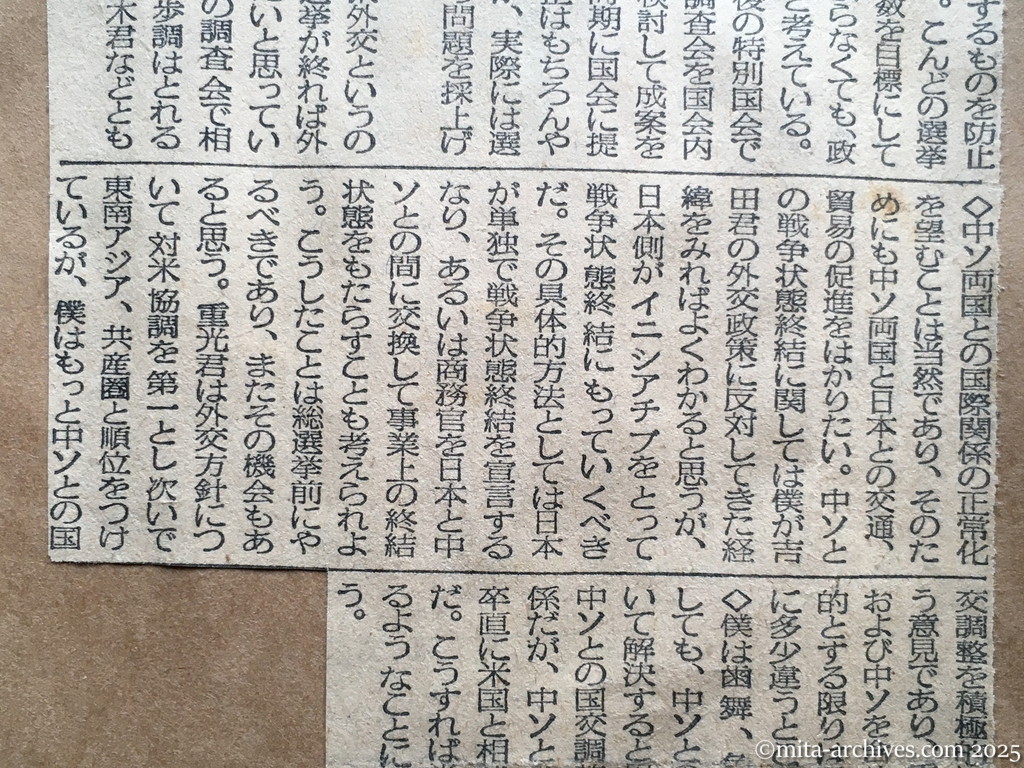 するものを防止
。こんどの選挙
数を目標にして
らなくても、政
と考えている。
後の特別国会で
調査会を国会内
検討して成案を
期に国会に提
はもちろんや
、実際には選
問題を採上げ
外交というの
選挙が終れば外
いと思ってい
の調査会で相
歩調はとれる
木君などとも
◇中ソ両国との国際関係の正常化
を望むことは当然であり、そのた
めにも中ソ両国と日本との交通、
貿易の促進をはかりたい。中ソと
の戦争状態終結に関しては僕が吉
田君の外交政策に反対してきた経
緯をみればよくわかると思うが、
日本側がイニシアチブをとって
戦争状態終結にもっていくべき
だ。その具体的方法としては日本
が単独で戦争状態終結を宣言する
なり、あるいは商務官を日本と中
ソとの間に交換して事業上の終結
状態をもたらすことも考えられよ
う。こうしたことは総選挙前にや
るべきであり、またその機会もあ
ると思う。重光君は外交方針につ
いて対米協調を第一とし次いで
東南アジア、共産圏と順位をつけ
ているが、僕はもっと中ソとの国
交調整を積極
う意見であり、
および中ソを
的とする限り
に多少違うと
◇僕は歯舞、
しても、中ソと
いて解決すると
中ソとの国交調
係だが、中ソと
卒直に米国と相
だ。こうすれば
るようなことに
う。
©mita-archives.com 2025